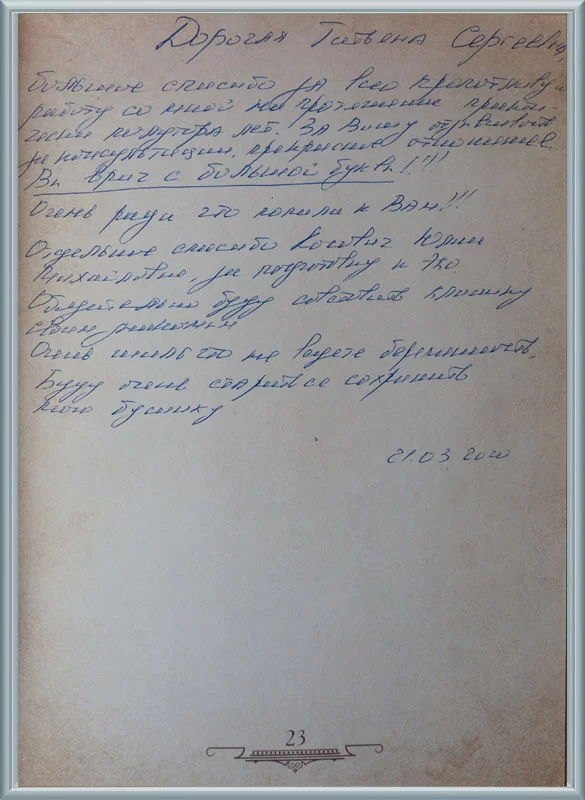 Дорогая Татьяна Сергеевна,
большое спасибо за всю кропотливую
работу со мной на протяжении практи-
чески полутора лет. За Вашу отзывчивость
за консультации, прекрасное отношение
Вы врач с большой буквы!!!!
Очень рада что попала к Вам!!!
Отдельное спасибо Юлии
Михайловне, за подготовку к Эко.
Обязательно буду советовать клинику
своим знакомым
Очень жаль что не ведете беременность.
Буду очень стараться сохранить
мою бусинку
21.03.2020
23